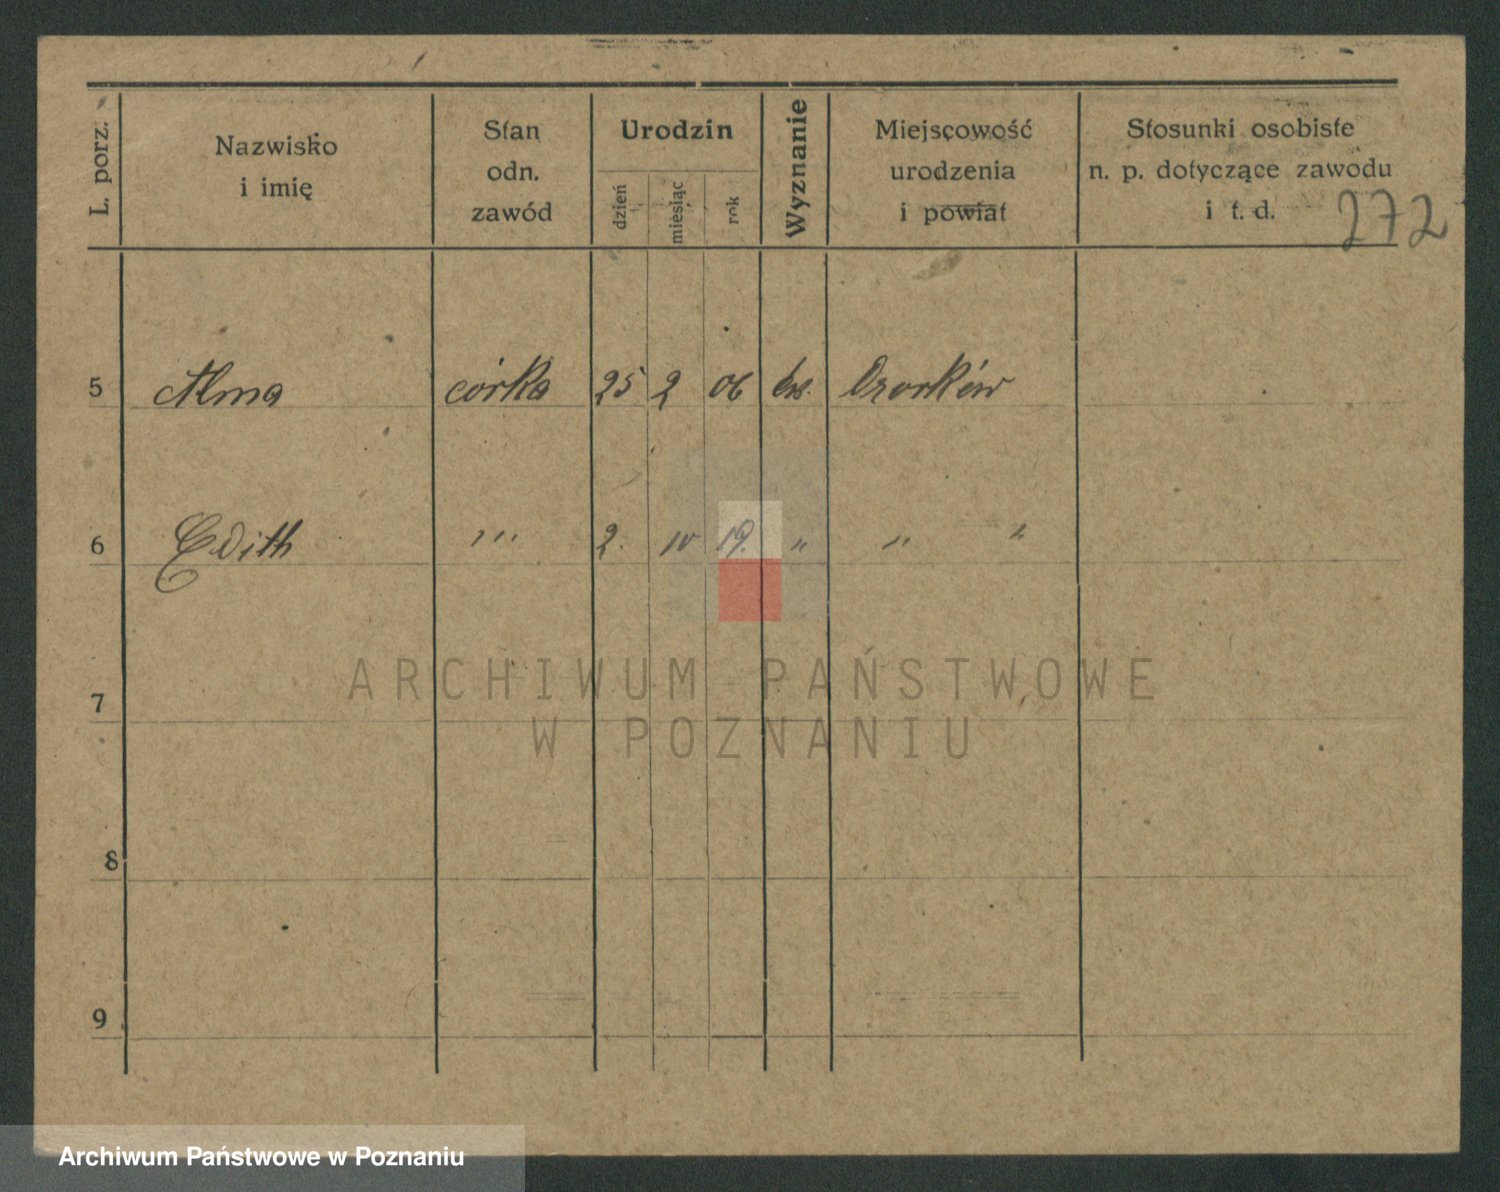 L. porz.
Nazwisko
i imię
Stan
odn.
zawód
Urodzin
dzień
miesiąc
rok
Wyznanie
Miejscowość
urodzenia
i powiat
Stosunki osobiste
n. p. dotyczące zawodu
i t. d.
272
5 Alma córka 25 2 06 ew. Ozorków
6 Edith ,,, 2. IV 19. " " "
7
ARCHIWUM PAŃSTWOWE
W POZNANIU
8
9
Archiwum Państwowe w Poznaniu